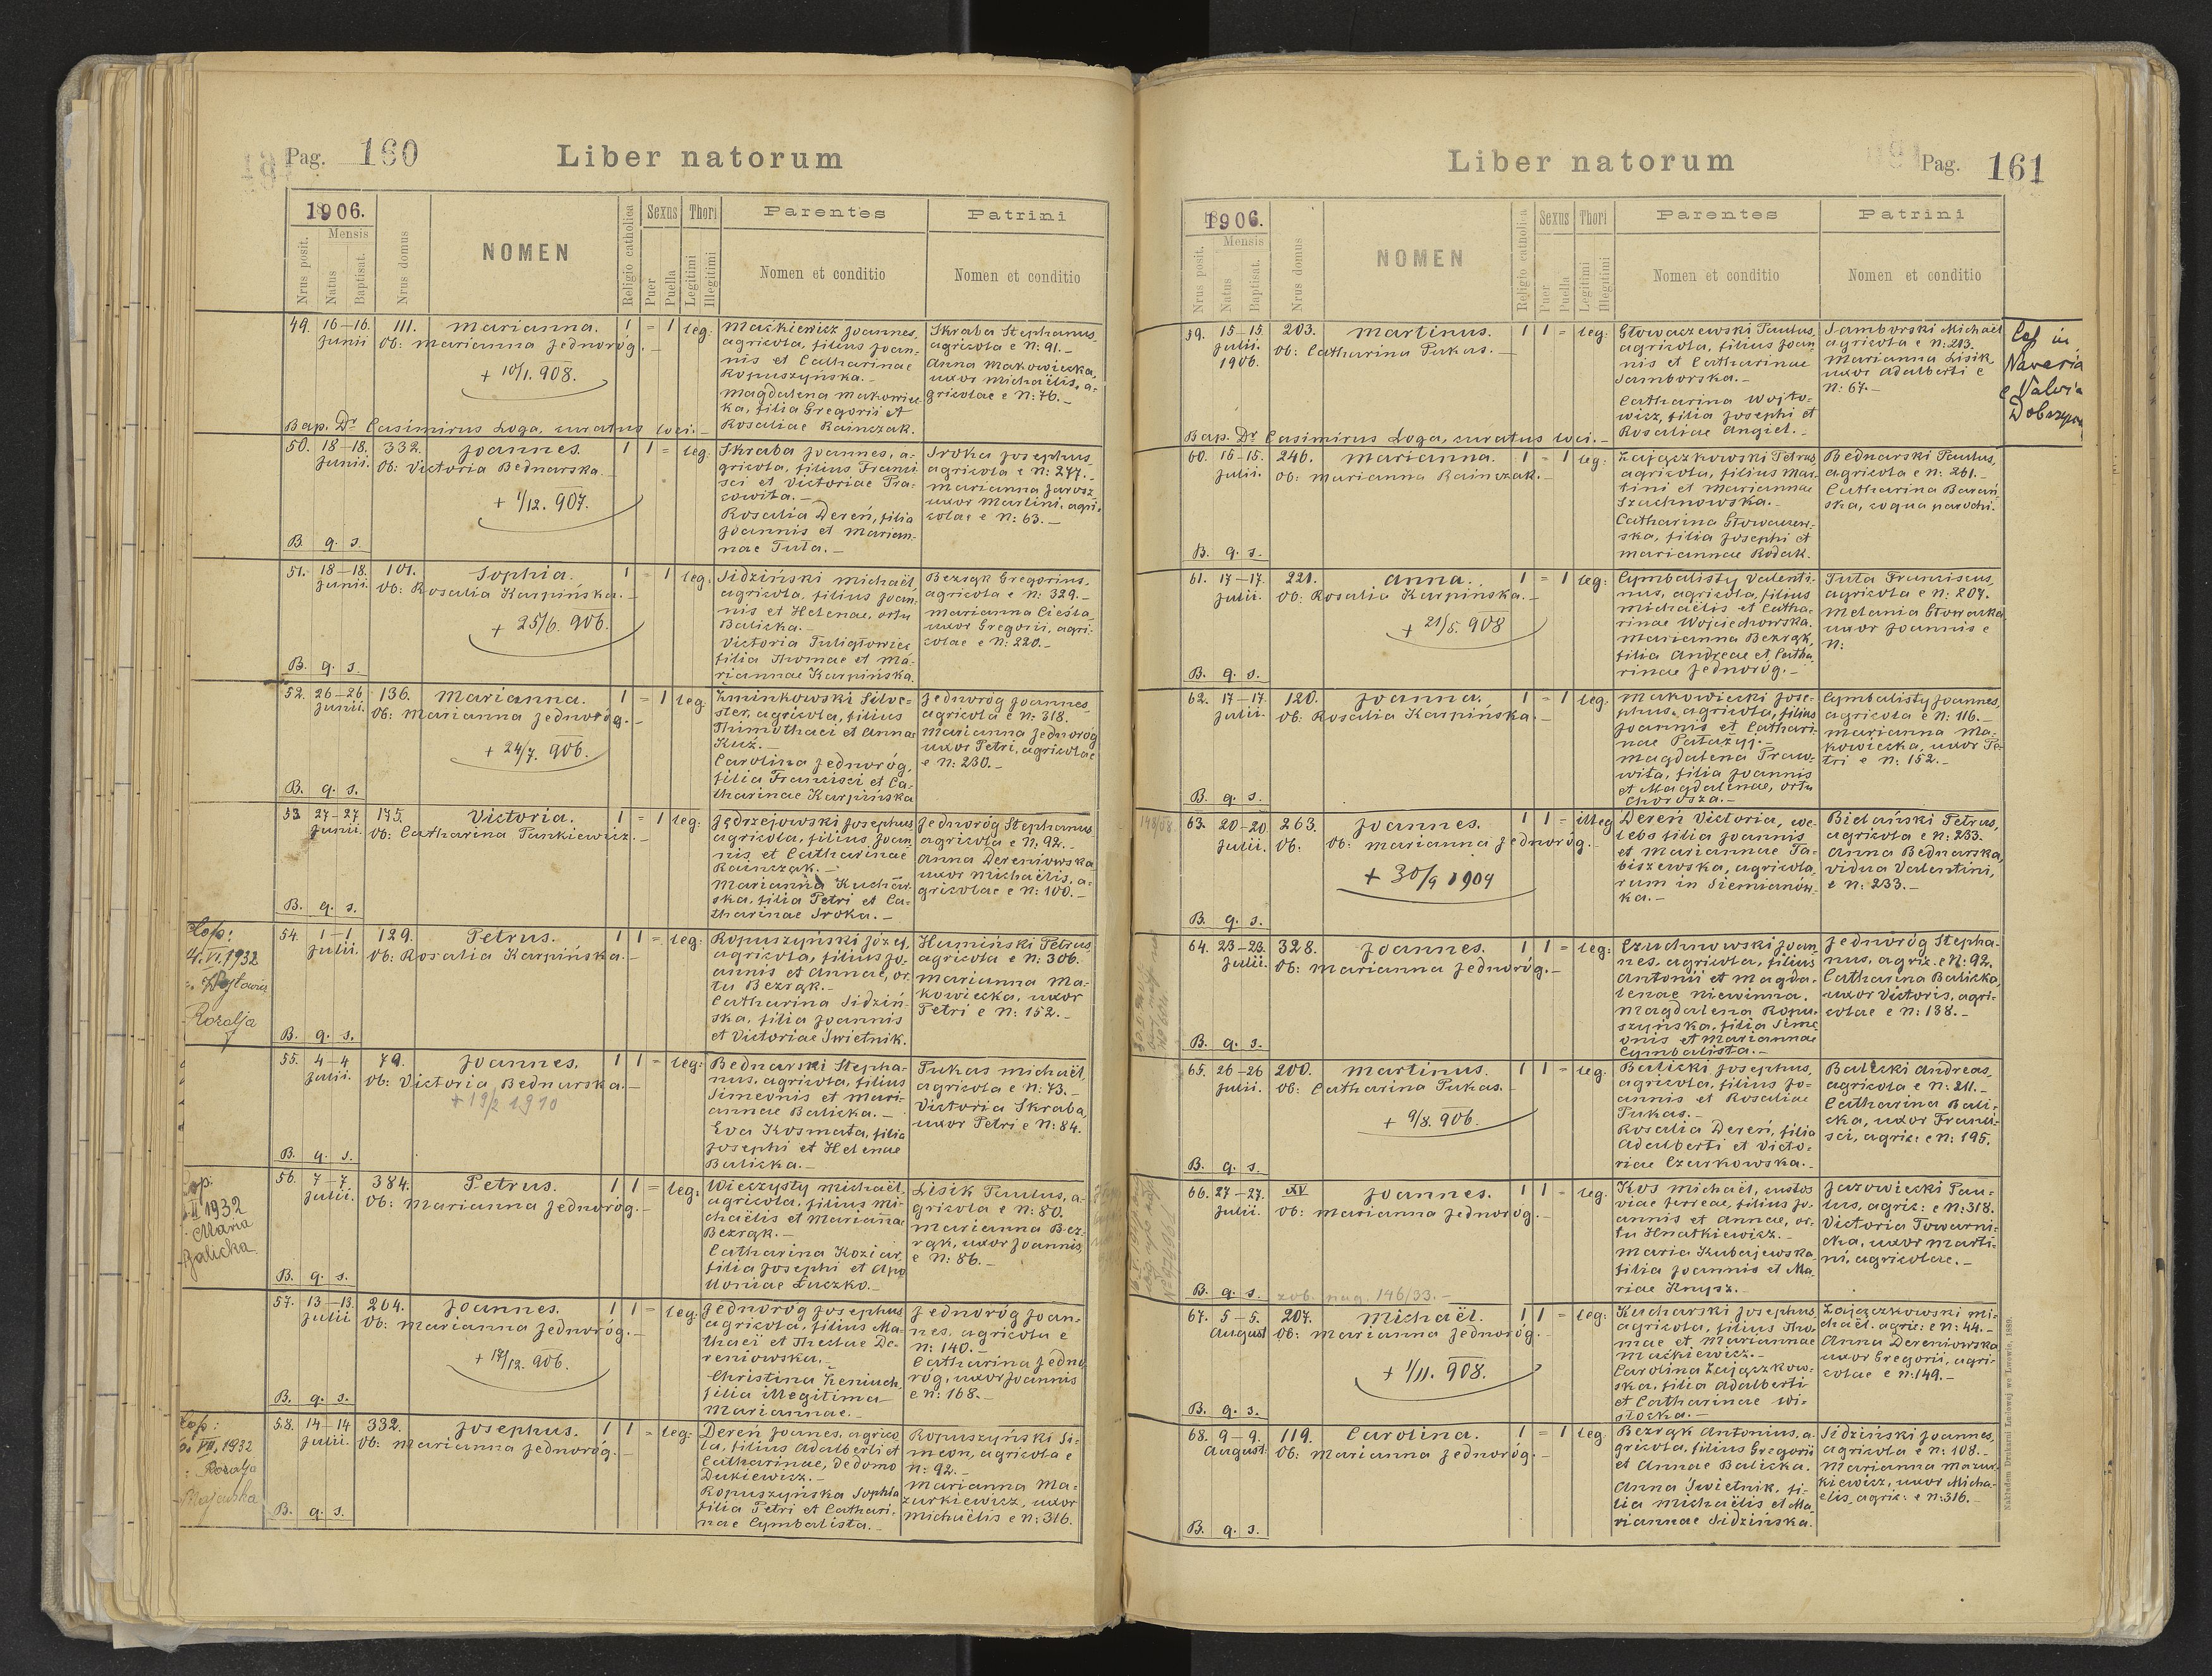 Pag. 160
Liber natorum
1906.
Mensis
Nrus posit.
Natus
Baptisat.
Nrus domus
NOMEN
Religio catholica
Sexus
Puer
Puella
Thori
Legitimi
Illegitimi
Parentes
Nomen et conditio
Patrini
Nomen et conditio
49. 16–16. Junii 111. Marianna. 1 = 1 leg:
Ob: Marianna Jednoróg.–
+ 10/1. 908.
Maćkiewicz Joannes,
agricola, filius Joan-
nis et Catharinae
Kopuszyńska.–
Magdalena Makowiec-
ka, filia Gregorii et
Rosaliae Rainczak.
Skraba Stephanus,
agricola e N: 91.–
Anna Makowiecka,
uxor Michaëlis, a-
gricolae e N: 76.–
Bap. Dr Casimirus Loga, curatus loci.–
50. 18–18. Junii. 332. Joannes. 1 1 = leg:
Ob: Victoria Bednarska.
+ 1/12. 907.
Skraba Joannes, a-
gricola, filius Franci-
sci et Victoriae Pra-
cowita.–
Rosalia Dereń, filia
Joannis et Marian-
nae Tuta.–
Sroka Josephus,
agricola e N: 277.–
Marianna Jarosz,
uxor Martini, agri-
colae e N: 63.–
B. q. s.
51. 18–18. Junii. 101. Sophia. 1 = 1 leg:
Ob: Rosalia Karpińska.–
+ 25/6. 906.
Sidziński Michaël,
agricola, filius Joan-
nis et Helenae, ortu
Balicka.–
Victoria Tuligłowicz
filia Thomae et Ma-
riannae Karpińska.
Bezrąk Gregorius,
agricola e N: 329.–
Marianna Cieśla,
uxor Gregorii, agri-
colae e N: 220.–
B. q. s.
52. 26–26 Junii. 136. Marianna. 1 = 1 leg:
Ob: Marianna Jednoróg.–
+ 24/7. 906.
Żminkowski Silve-
ster, agricola, filius
Thimothaei et Annae
Kuz.–
Carolina Jednoróg,
filia Francisci et Ca-
tharinae Karpińska
Jednoróg Joannes,
agricola e N: 318.
Marianna Jednoróg
uxor Petri, agricolae
e N: 230.–
B. q. s.
53. 27–27 Junii. 175. Victoria. 1 = 1 leg:
Ob: Catharina Pankiewicz.–
Jędrzejowski Josephus
agricola, filius Joan-
nis et Catharinae
Rainczak.–
Marianna Kuchar-
ska, filia Petri et Ca-
tharinae Sroka.–
Jednoróg Stephanus
agricola e N. 92.–
Anna Dereniowska
uxor Michaëlis, a-
gricolae e N: 100.–
B. q. s.
Cop:
VI. 1932
Rozalja
54. 1–1 Julii. 129. Petrus. 1 1 = leg:
Ob: Rosalia Karpińska.–
Kopuszyński Józef,
agricola, filius Jo-
annis et Annae, or-
tu Bezrąk.–
Catharina Sidziń-
ska, filia Joannis
et Victoriae Świetnik.
Humiński Petrus,
agricola e N: 306.
Marianna Ma-
kowiecka, uxor
Petri e N: 152.–
B. q. s.
55. 4–4 Julii. 79. Joannes. 1 1 = leg:
Ob: Victoria Bednarska.–
+ 19/2 1910
Bednarski Stepha-
nus, agricola, filius
Simeonis et Mari-
annae Balicka.–
Eva Kosmata, filia
Josephi et Helenae
Balicka.–
Pukas Michaël,
agricola e N: 73.–
Victoria Skraba,
uxor Petri e N: 84.
B. q. s.
Cop:
II 1932
Maria
Balicka
56. 7–7 Julii. 384. Petrus. 1 1 = leg:
Ob: Marianna Jednoróg.–
Wieczysty Michaël,
agricola, filius Mi-
chaëlis et Mariannae
Bezrąk.–
Catharina Koziar,
filia Josephi et Apo
lloniae Łuczko.–
Lisik Paulus, a-
gricola e N: 80.
Marianna Bez-
rąk, uxor Joannis,
e N: 86.–
B. q. s.
57. 13–13. Julii 264. Joannes. 1 1 = leg:
Ob: Marianna Jednoróg.–
+ 17/12. 906.
Jednoróg Josephus
agricola, filius Ma-
thaei et Theclae De-
reniowska.–
Christina Żeniuch,
filia illegitima
Mariannae.–
Jednoróg Joan-
nes, agricola e
N: 140.–
Catharina Jedno-
róg, uxor Joannis
e N: 168.–
B. q. s.
Cop:
VII. 1932
Rozalja
58. 14–14 Julii. 332. Josephus. 1 1 = leg:
Ob: Marianna Jednoróg.–
Dereń Joanes, agrico
la, filius Adalberti et
Catharinae, de domo
Dukiewicz.–
Kopuszyńska Sophia
filia Petri et Cathari-
nae Cymbalista.–
Kopuszyński Si-
meon, agricola e
N: 92.–
Marianna Ma-
zurkiewicz, uxor
Michaëlis e N: 316.
B. q. s.
Liber natorum
Pag. 161
1906.
Mensis
Nrus posit.
Natus
Baptisat.
Nrus domus
NOMEN
Religio catholica
Sexus
Puer
Puella
Thori
Legitimi
Illegitimi
Parentes
Nomen et conditio
Patrini
Nomen et conditio
59. 15–15 Julii. 1906. 203. Martinus. 1 1 = leg:
Ob: Catharina Pukas.–
Głowaczewski Paulus,
agricola, filius Joan
nis et Catharinae
Samborska.–
Catharina Wojto-
wicz, filia Josephi et
Rosaliae Angiel.–
Samborski Michaël
agricola e N: 213.
Marianna Lisik
uxor Adalberti e
N: 67.–
Cop in
Navaria
Dobrzan
Bap. Dr Casimirus Loga, curatus loci.–
60. 15–15. Julii. 246. Marianna. 1 = 1 leg:
Ob: Marianna Rainczak.–
Zajączkowski Petrus
agricola, filius Mar-
tini et Mariannae
Szuchnowska.–
Catharina Głowaczew-
ska, filia Josephi et
Mariannae Rodak.
Bednarski Paulus,
agricola e N: 261.–
Catharina Barań
ska, coqua parochi.
B. q. s.
61. 17–17. Julii. 221. Anna. 1 = 1 leg:
Ob: Rosalia Karpińska.–
+ 21/5. 908
Cymbalisty Valenti-
nus, agricola, filius
Michaëlis et Catha-
rinae Wojciechowska.
Marianna Bezrąk,
filia Andreae et Catha
rinae Jednoróg.–
Tuta Franciscus,
agricola e N: 207.
Melania Głowacka
uxor Joannis e
N:
B. q. s.
62. 17–17 Julii. 120. Joanna. 1 = 1 leg:
Ob: Rosalia Karpińska.–
Makowiecki Jose-
phus, agricola, filius
Joannis et Cathari-
nae Patażyj.–
Magdalena Praw-
wita, filia Joannis
et Magdalenae, ortu
Chorosza.–
Cymbalisty Joannes,
agricola e N: 116.–
Marianna Ma-
kowiecka, uxor Pe-
tri e N: 152.–
B. q. s.
148/58
63. 20–20 Julii. 263. Joannes. 1 1 = illeg
Ob: Ob: Marianna Jednoróg.–
+ 30/9 1909
Dereń Victoria, coe-
lebs filia Joannis
et Mariannae Ta-
biszewska, agricola-
rum in Siemianów-
ka.–
Bielański Petrus,
agricola e N: 233.
Anna Bednarska,
vidua Valentini,
e N: 233.–
B. q. s.
64. 23–23. Julii. 328. Joannes. 1 1 = leg:
Ob: Marianna Jednoróg.–
Czuchnowski Joan-
nes, agricola, filius
Antonii et Magda-
lenae Niewinna.
Magdalena Kopu-
szyńska, filia Sime
onis et Mariannae
Cymbalista.–
Jednoróg Stepha-
nus, agric. e N: 92.
Catharina Balicka,
uxor Victoris, agri-
colae e N: 138.–
B. q. s.
65. 26–26 Julii. 200. Martinus. 1 1 = leg:
Ob: Catharina Pukas.–
+ 9/8. 906.
Balicki Josephus,
agricola, filius Jo-
annis et Rosaliae
Pukas.–
Rosalia Dereń, filia
Adalberti et Victo-
riae Czurkowska.–
Balicki Andreas,
agricola e N: 211.–
Catharina Bali-
cka, uxor Franci-
sci, agric: e N: 195.
B. q. s.
66. 27–27. Julii. XV Joannes. 1 1 - leg:
Ob: Marianna Jednoróg.–
Kos Michaël, custos
viae ferreae, filius Jo-
annis et Annae, or-
tu Hnatkiewicz.–
Maria Kubajewska
filia Joannis et Ma-
riae Knysz.–
Jazowiecki Pau-
lus, agric: e N: 318.
Victoria Towarni-
cka, uxor Marti-
ni, agricolae.–
B. q. s. zob. pag. 146/33.–
67. 5–5. August 207. Michaël. 1 1 = leg:
Ob: Marianna Jednoróg.–
+ 1/11. 908.
Kucharski Josephus,
agricola, filius Tho-
mae et Mariannae
Maćkiewicz.–
Carolina Zajączkow-
ska, filia Adalberti
et Catharinae Wi-
słocka.–
Zajączkowski Mi-
chaël. agric: e N: 44.–
Anna Dereniowska
uxor Gregorii, agri-
colae e N: 149.–
B. q. s.
68. 9–9. August: 119. Carolina. 1 = 1 leg:
Ob: Marianna Jednoróg.–
Bezrąk Antonius, a-
gricola, filius Gregorii
et Annae Balicka.
Anna Świetnik, fi-
lia Michaëlis et Ma
riannae Sidzińska.
Sidziński Joannes,
agricola e N: 108.–
Marianna Mazur-
kiewicz, uxor Micha-
ëlis, agric: e N: 316.–
B. q. s.
Nakładem Drukarni Ludowej we Lwowie, 1889.